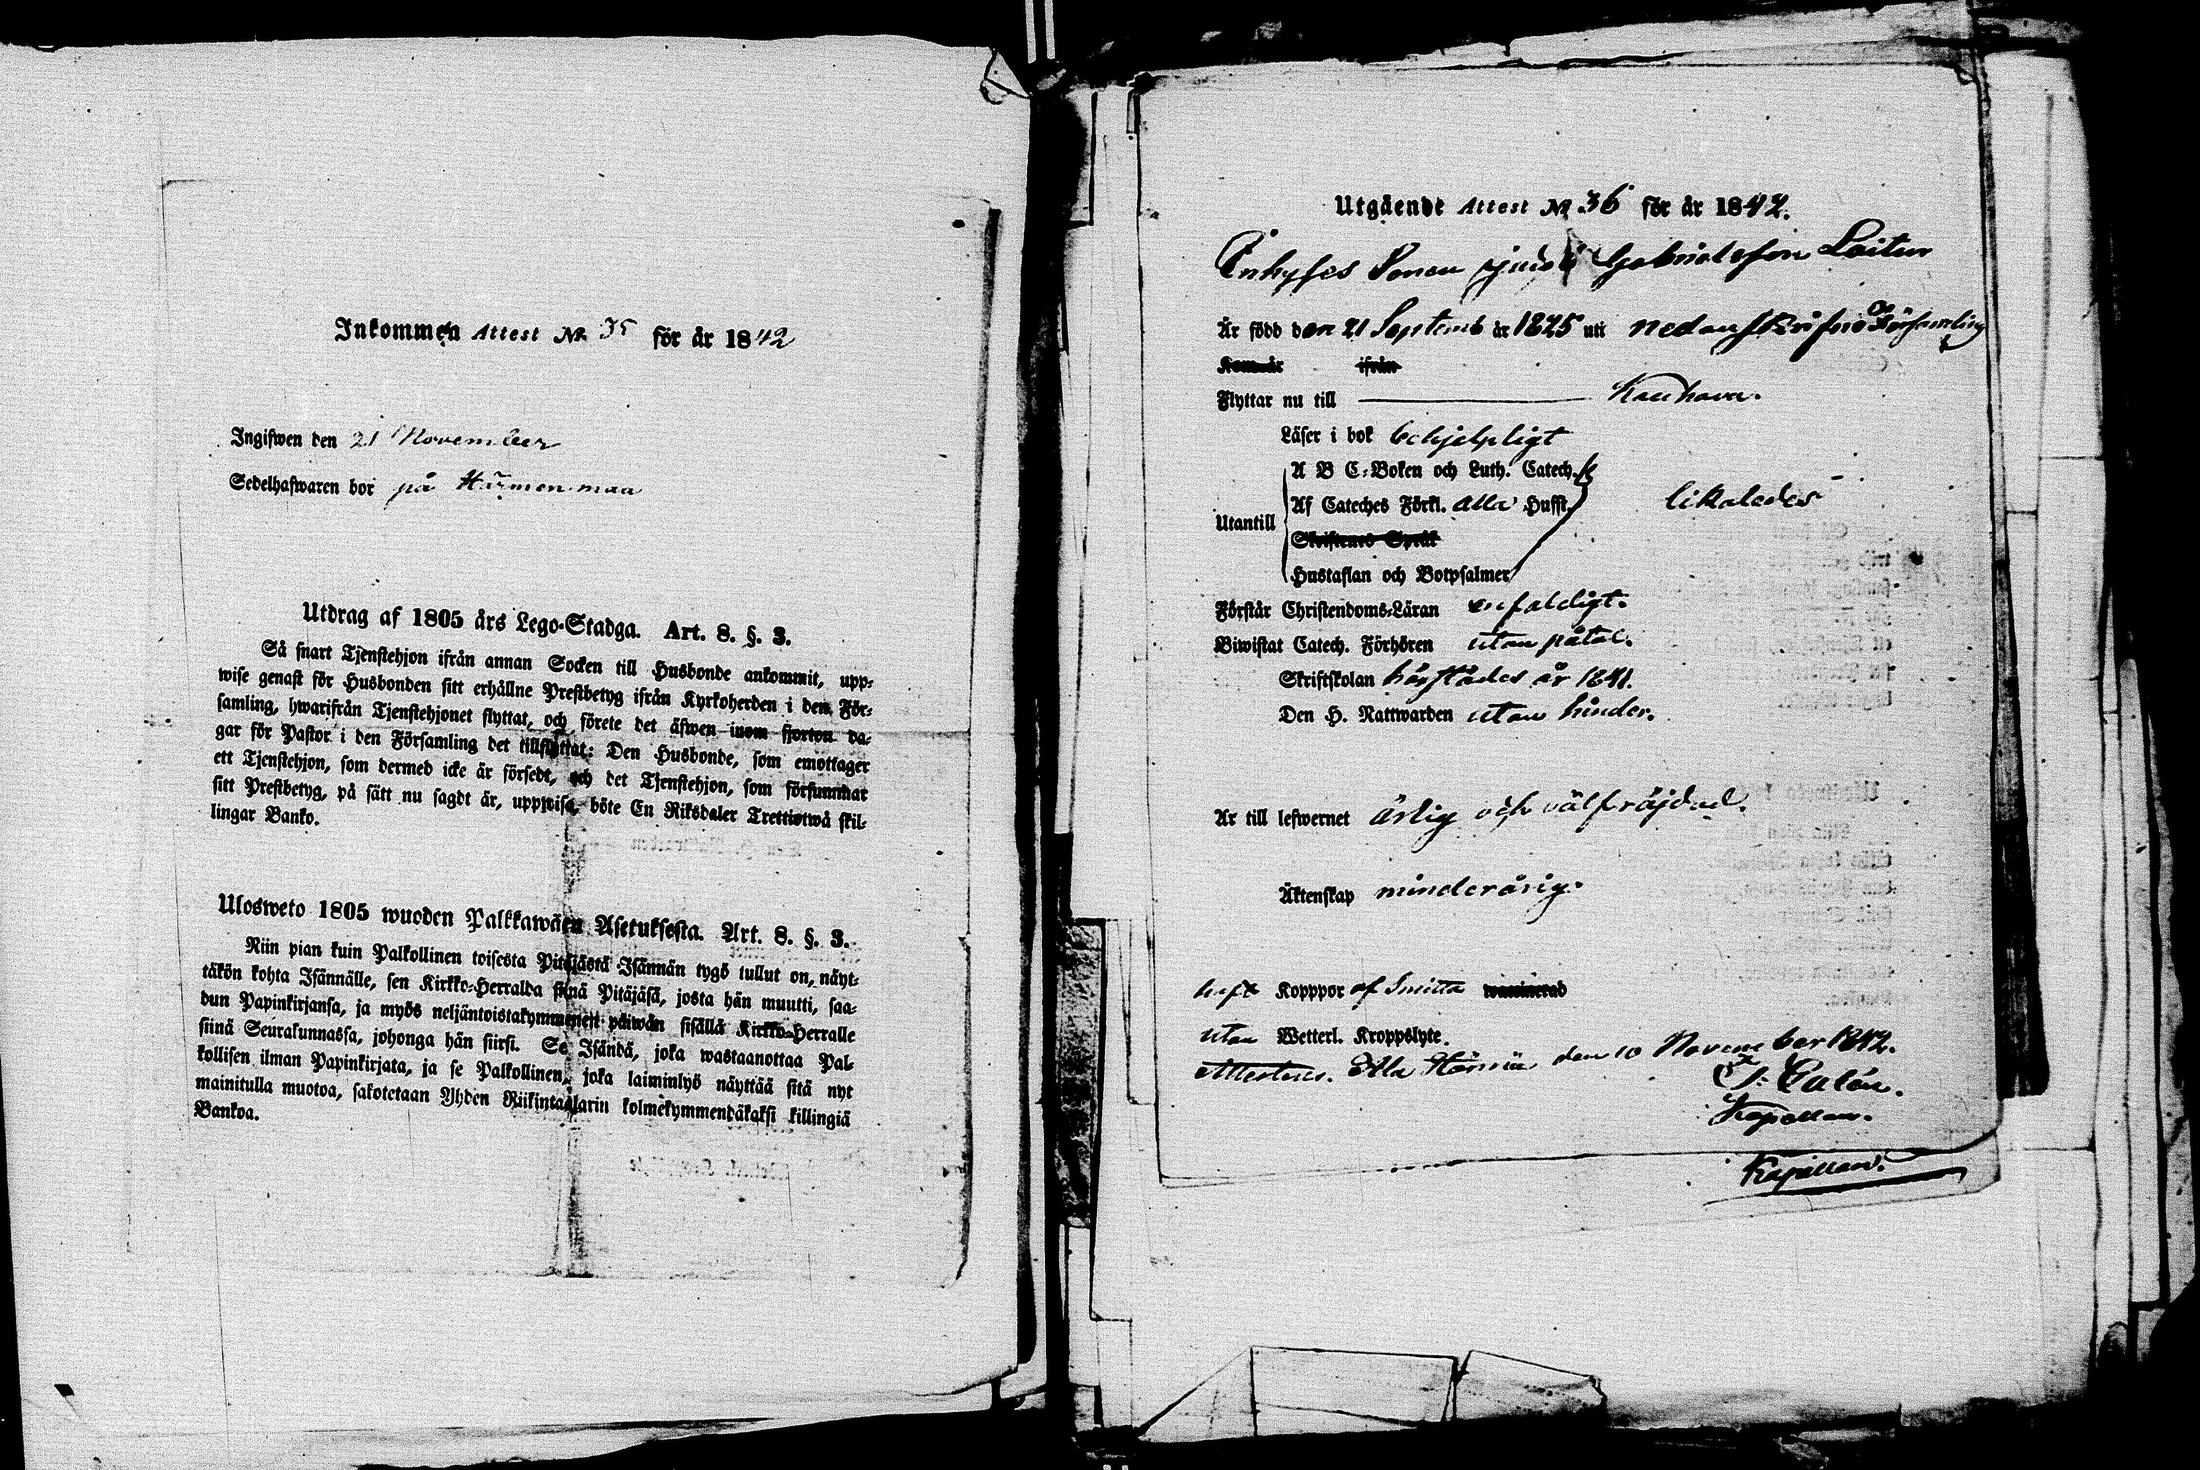 Inkommen Attest No 35 för år 1842
Ingifwen den 21 November
Sedelhafwaren bor på Harmenmaa
Utdrag af 1805 års Lego-Stadga. Art. 8. §. 3.
Så snart Tjenstehjon ifrån annan Socken till Husbonde ankommit, upp-
wise genast för Husbonden sitt erhållne Prestbetyg ifrån Kyrkoherden i den För-
samling, hwarifrån Tjenstehjonet flyttat, och förete det äfwen inom fjorton da-
gar för Pastor i den Församling det tillflyttat: Den Husbonde, som emottager
ett Tjenstehjon, som dermed icke är försedt, och det Tjenstehjon, som försummar
sitt Prestbetyg, på sätt nu sagdt är, uppwisa, böte En Riksdaler Trettiotwå skil-
lingar Banko.
Ulosweto 1805 wuoden Palkkawäen Asetuksesta. Art. 8. §. 3.
Niin pian kuin Palkollinen toisesta Pitäjästä Isännän tygö tullut on, näyt-
täkön kohta Isännälle, sen Kirkko-Herralda siinä Pitäjäsä, josta hän muutti, saa-
dun Papinkirjansa, ja myös neljäntoistakymmenen päiwän sisällä Kirkko-Herralle
siinä Seurakunnassa, johonga hän siirsi. Se Isändä, joka wastaanottaa Pal-
kollisen ilman Papinkirjata, ja se Palkollinen, joka laiminlyö näyttää sitä nyt
mainitulla muotoa, sakotetaan Yhden Riikintaalarin kolmekymmendäkaksi killingiä
Bankoa.
Utgående Attest No 36 för år 1842.
Inhyses Sonen Gabrielsson
Är född den 21 Septemb år 1825 uti nedanskrifne Församling
Kom år ifrån
Flyttar nu till Kauhava.
Läser i bok behjelpligt
A B C-Boken och Luth. Catech.
Af Cateches Förkl. alla Hufst. likaledes
Utantill
Skriftenes Språk
Hustaflan och Botpsalmer
Förstår Christendoms-Läran enfaldigt.
Biwistat Catech. Förhören utan påtal.
Skriftskolan härstädes år 1841.
Den H. Nattwarden utan hinder.
Är till lefwernet ärlig och välfräjdad.
Äktenskap minderårig.
haft Kopppor af Smitta waccinerad
utan Wetterl. Kroppslyte.
Attesteras. Ala Härmä den 10 November 1842.
Kapellan.
Kapellan.